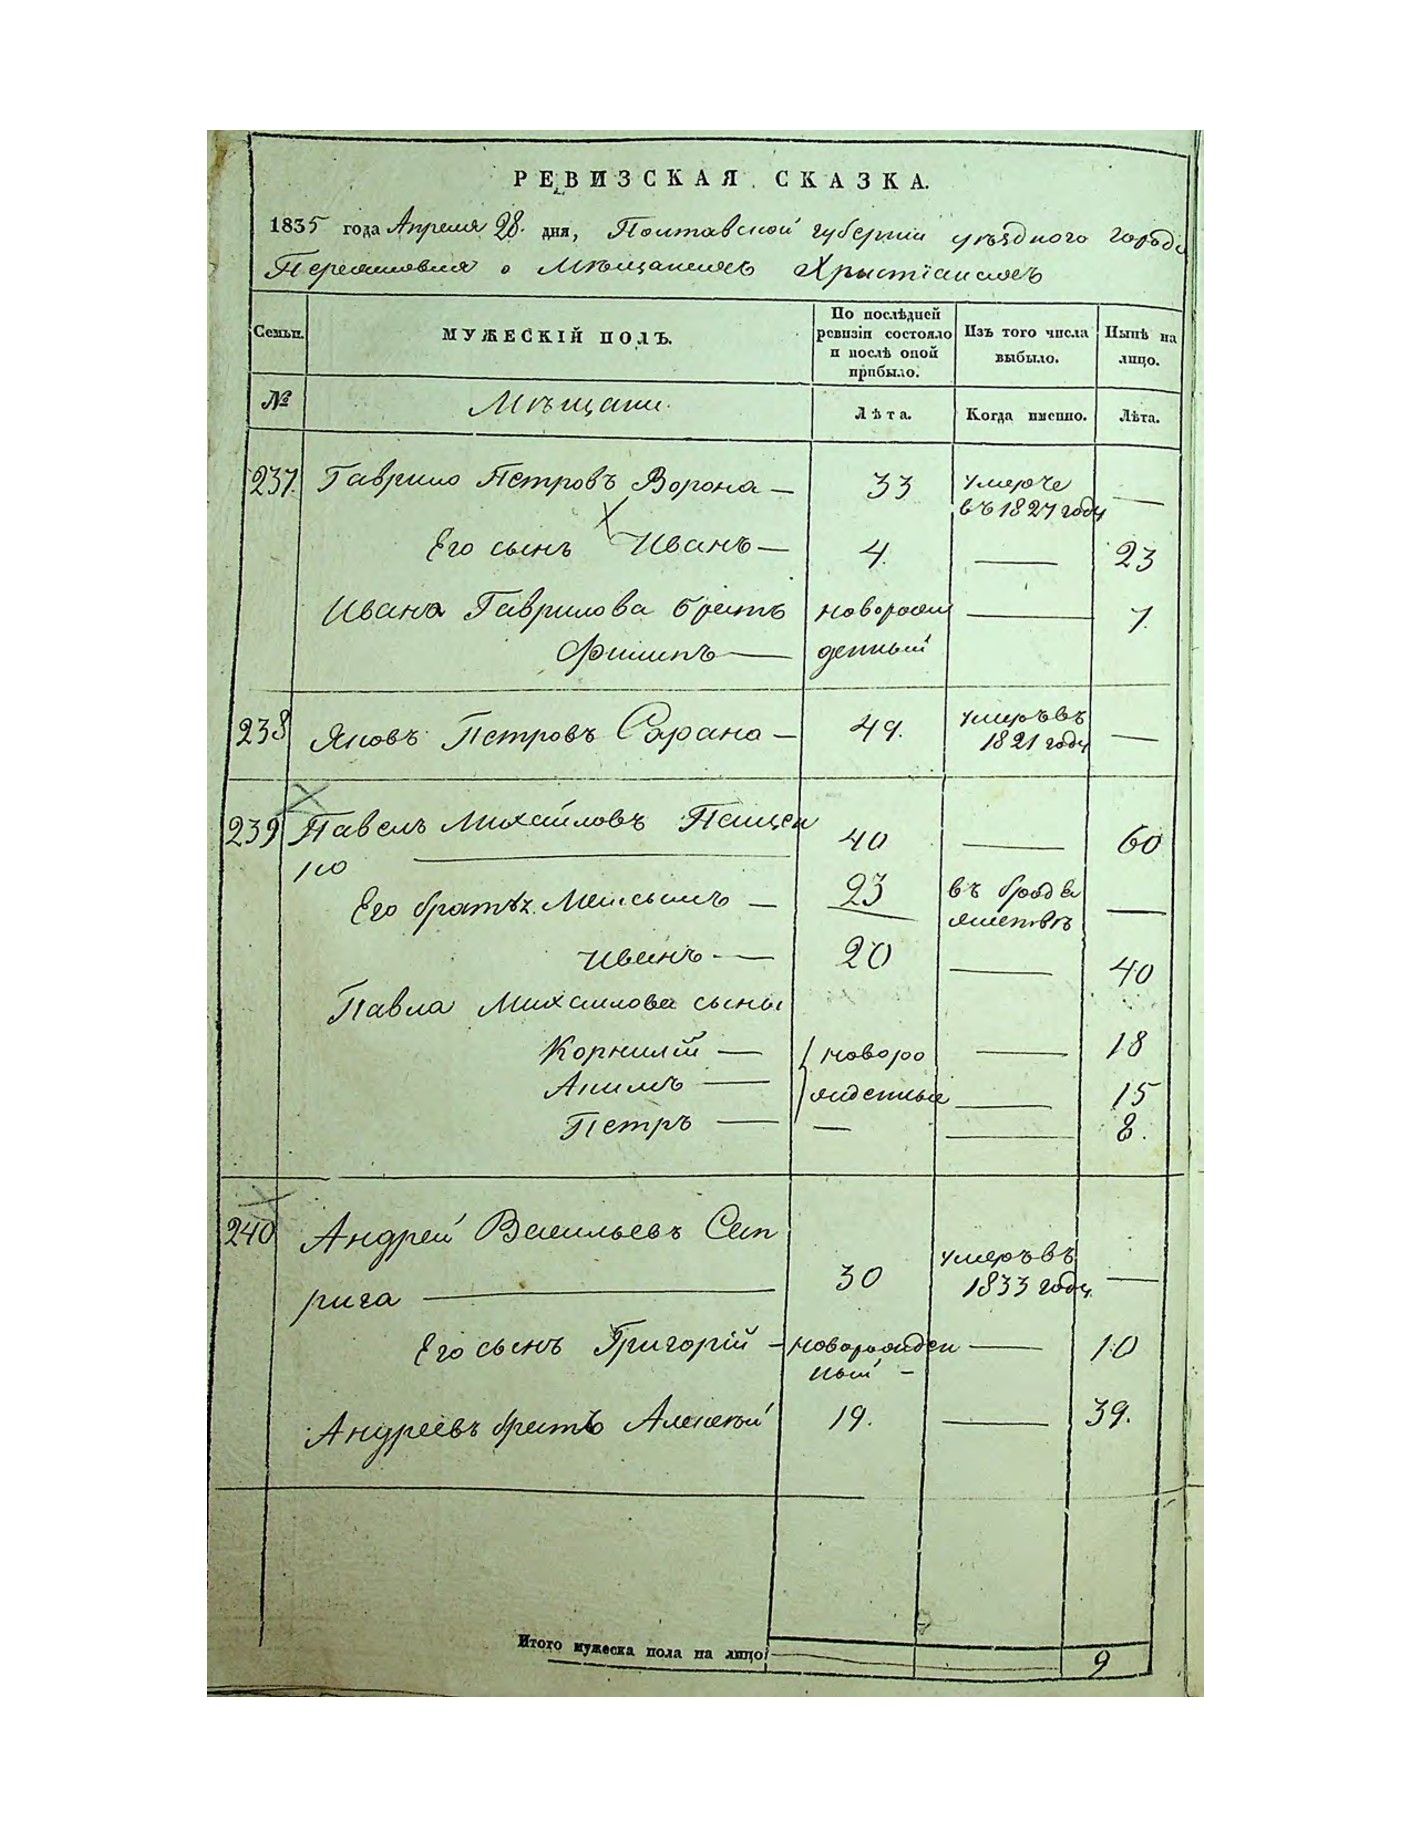 РЕВИЗСКАЯ СКАЗКА.
1835 года Апреля 28. дня, Полтавской губернии уѣзднаго города
Переяславля о Мѣщанахъ Христіанахъ
Семьи.
МУЖЕСКІЙ ПОЛЪ.
По послѣдней ревизіи состояло и послѣ оной прибыло.
Изъ того числа выбыло.
Нынѣ на лицо.
№
Мѣщане.
Лѣта.
Когда именно.
Лѣта.
237. Гаврило Петровъ Ворона — 33 умеръ —
въ 1827 году
Его сынъ Иванъ — 4. — 23
Ивана Гаврилова братъ новорож — 7.
Филипъ — денный
238 Яковъ Петровъ Сарана — 49. умеръ въ —
1821 году
239 Павелъ Михайловъ Пащен 40 — 60
ко —
Его братья Максимъ — 23 въ бродя —
жествѣ
Иванъ — 20 — 40
Павла Михаилова сыны
Корнилій — новоро — 18
Акимъ — жденные — 15
Петръ — — — 8.
240 Андрей Васильевъ Сап
рига — 30 умеръ въ —
1833 году
Его сынъ Григорій — новорожден — 10
ный —
Андреевъ братъ Алексѣй 19. — 39.
Итого мужеска пола на лицо 9